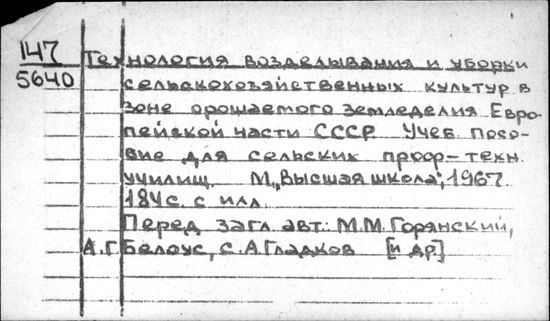 147
5640
Технология возделывания и уборки
сельскохозяйственных культур в
зоне орошаемого земледелия Евро-
пейской части СССР. Учеб. посо-
бие для сельских проф-техн.
училищ. М., "Высшая школа", 1967.
184с. с илл.
Перед загл. авт.: М.М. Горянский,
А.Г. Белоус, С.А. Гладков [и др]